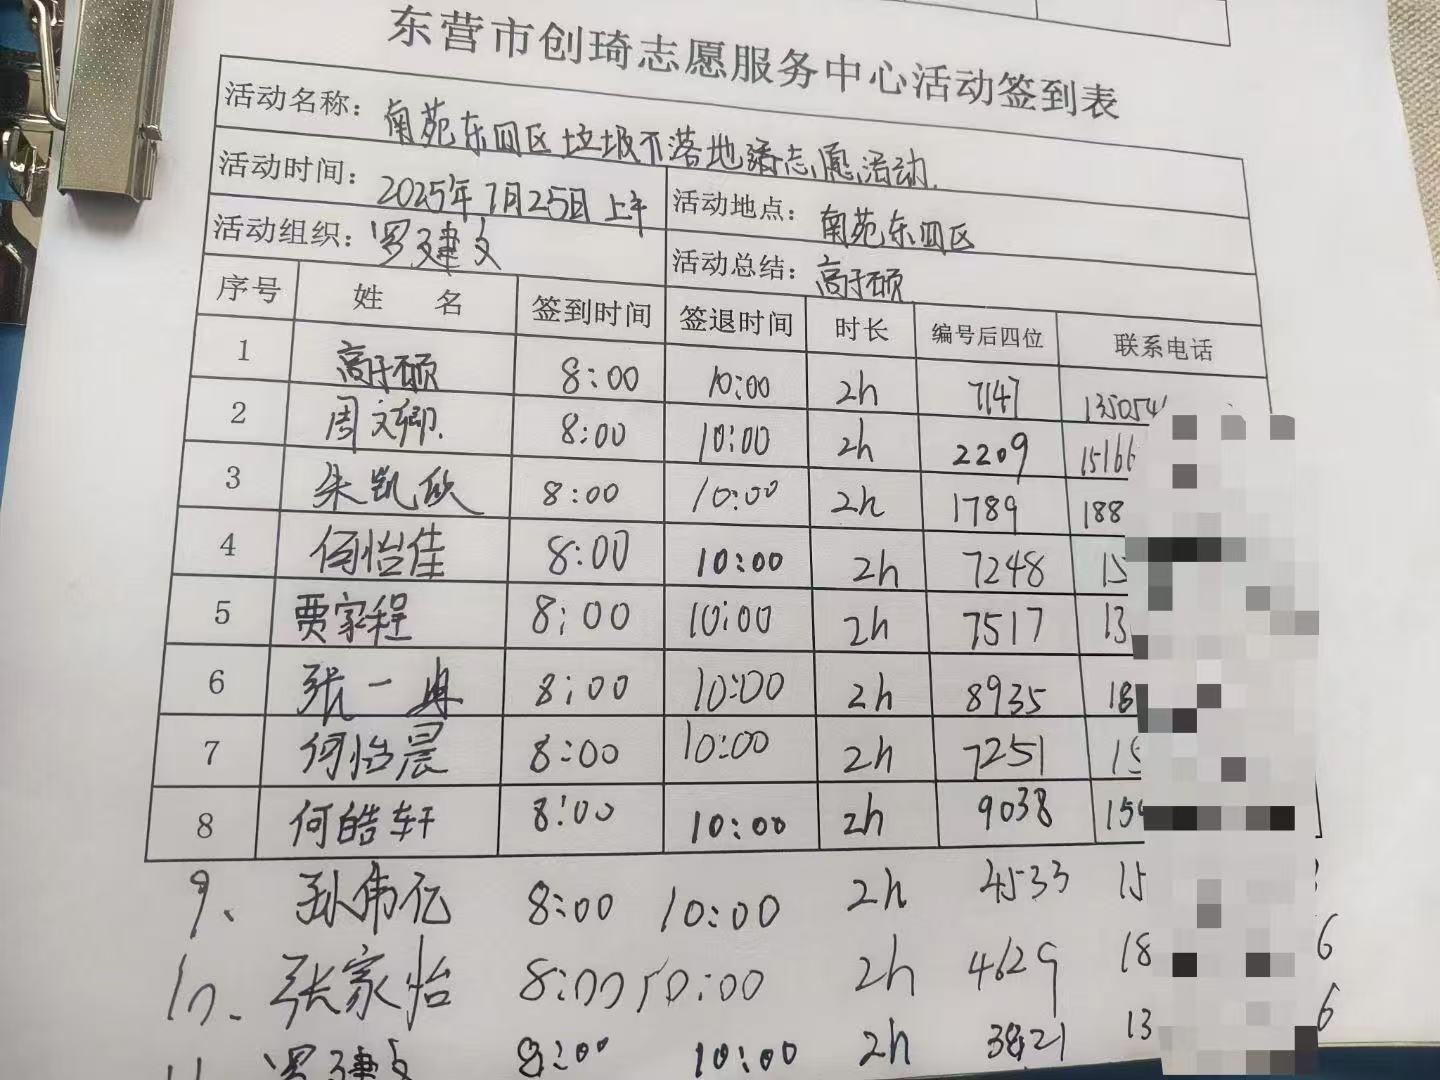 东营市创琦志愿服务中心活动签到表
活动名称： 南苑东四区垃圾不落地志愿活动.
活动时间： 2025年7月25日上午 活动地点： 南苑东四区
活动组织： 罗建文 活动总结： 高于硕
序号 姓 名 签到时间 签退时间 时长 编号后四位 联系电话
1 高于硕 8:00 10:00 2h 7147 135054
2 周文卿. 8:00 10:00 2h 2209 15166
3 朱凯欣 8:00 10:00 2h 1789 188
4 何怡佳 8:00 10:00 2h 7248 15
5 贾家程 8:00 10:00 2h 7517 13
6 张一冉 8:00 10:00 2h 8935 18
7 何怡晨 8:00 10:00 2h 7251 15
8 何皓轩 8:00 10:00 2h 9038 15
9、 孙伟亿 8:00 10:00 2h 4533 15
10、 张家怡 8:00 10:00 2h 4629 18 6
11 罗建文 8:00 10:00 2h 3821 13 6